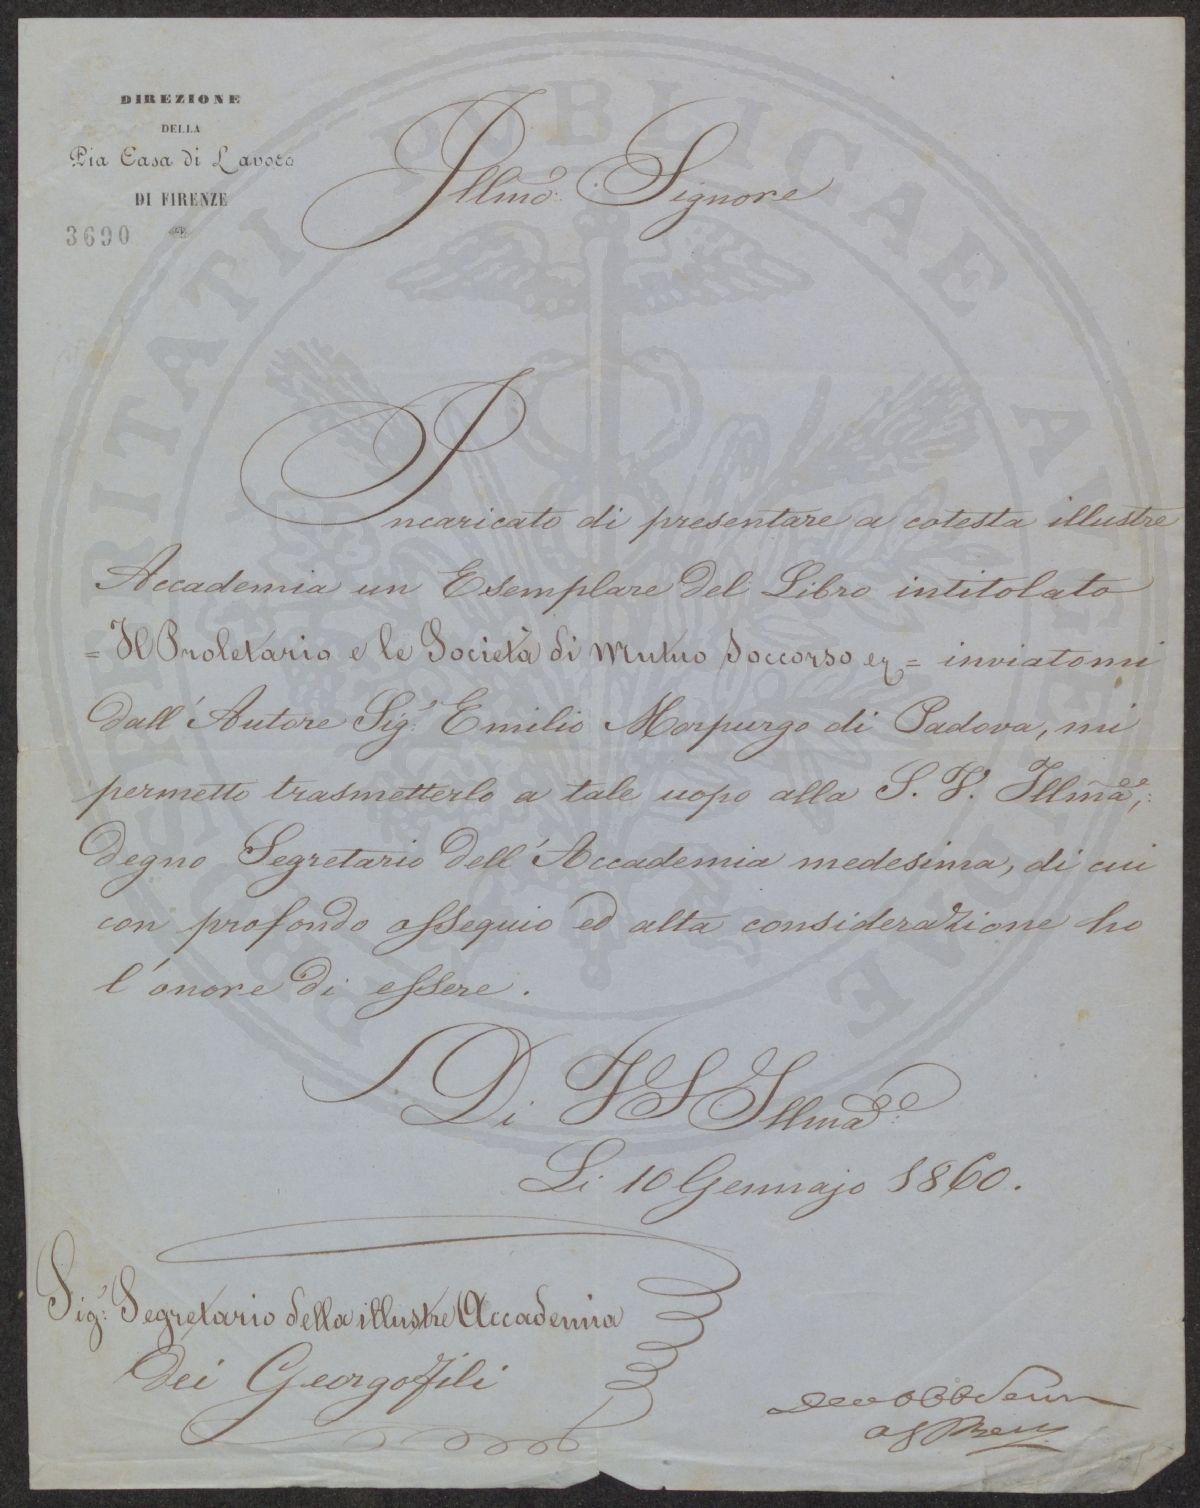 DIREZIONE
DELLA
Pia Casa di Lavoro
DI FIRENZE
3690
Illmo: Signore
Incaricato di presentare a cotesta illustre
Accademia un Esemplare del Libro intitolato
= Il Proletario e le Società di Mutuo Soccorso = inviatomi
dall'Autore Sig.r Emilio Morpurgo di Padova, mi
permetto trasmetterlo a tale uopo alla S. V. Illma,
degno Segretario dell'Accademia medesima, di cui
con profondo ossequio ed alta considerazione ho
l'onore di essere.
Di V S Illma
Li 10 Gennajo 1860.
Sig.r Segretario della illustre Accademia
dei Georgofili
PROSPERITATI PUBLICAE AVGENDAE